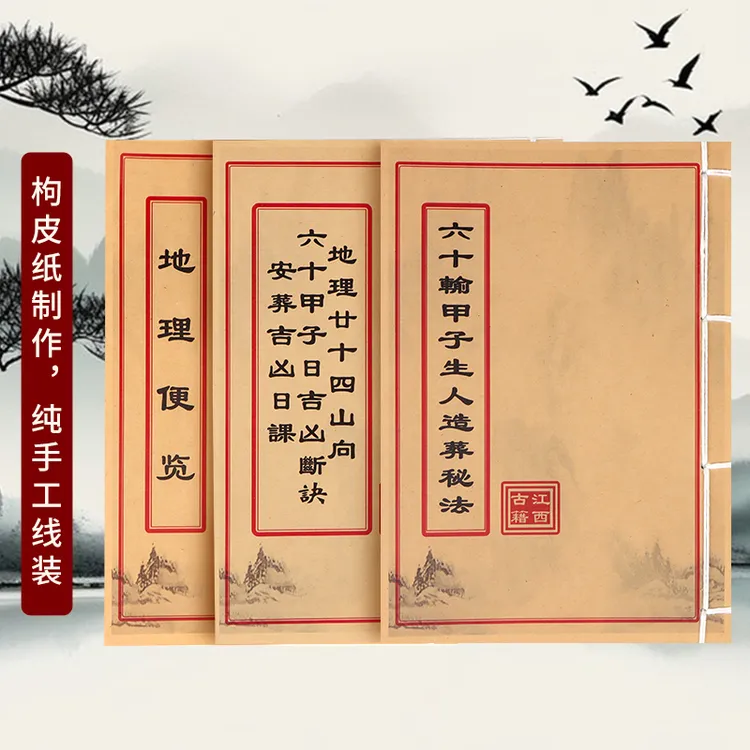 枸皮纸制作，纯手工线装
地理便览
地理廿十四山向
六十甲子日吉凶斷訣
安葬吉凶日課
六十輪甲子生人造葬秘法
江西
古籍